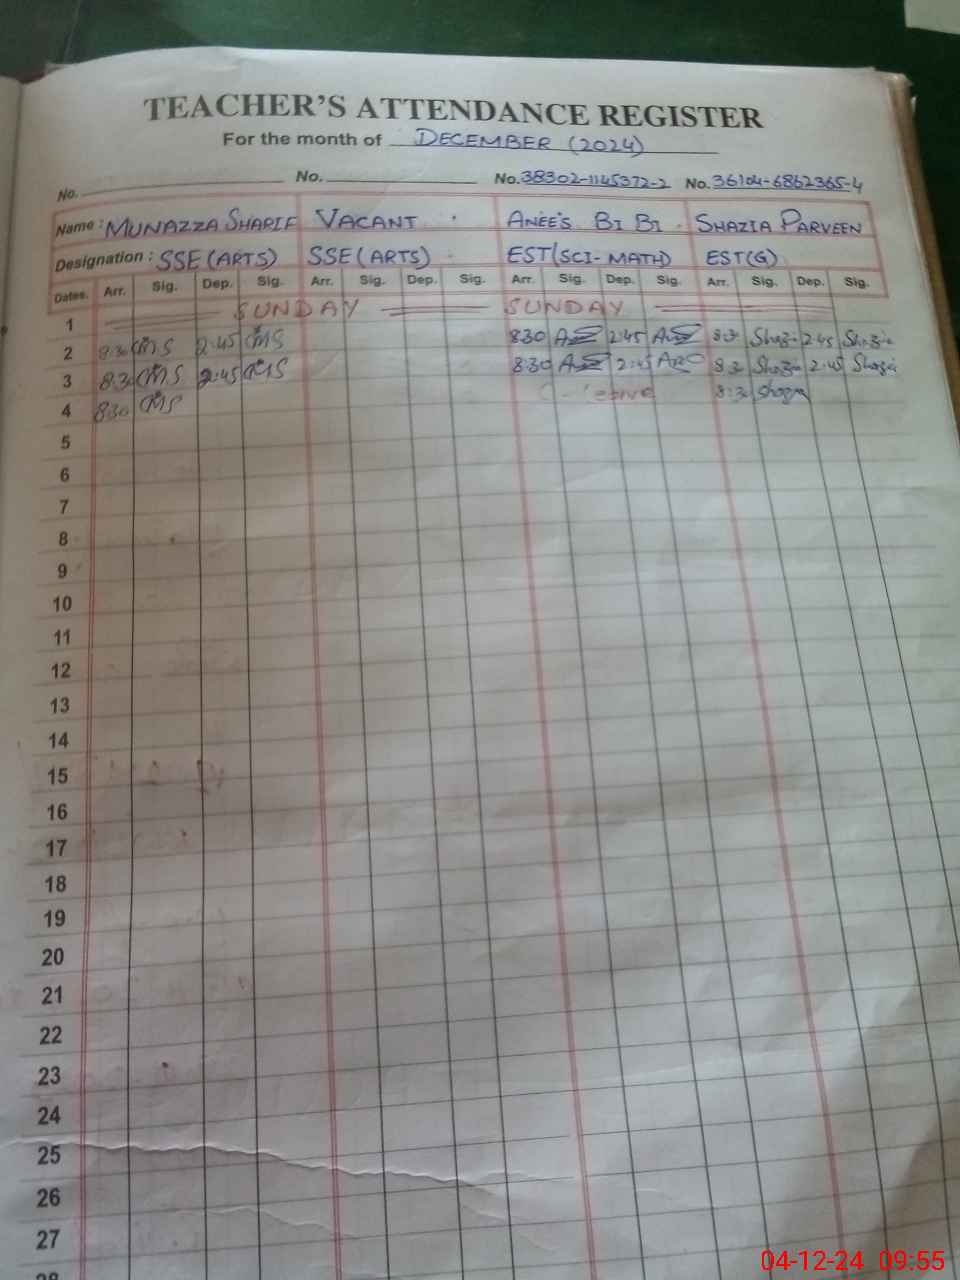 TEACHER'S ATTENDANCE REGISTER
For the month of DECEMBER (2024)
No. No. No. 38302-1145372-2 No. 36104-6862365-4
Name: MUNAZZA SHARIF VACANT ANEES BI BI SHAZIA PARVEEN
Designation: SSE (ARTS) SSE (ARTS) EST(SCI-MATH) EST(G)
Dates. Arr. Sig. Dep. Sig. Arr. Sig. Dep. Sig. Arr. Sig. Dep. Sig. Arr. Sig. Dep. Sig.
1 SUNDAY SUNDAY
2 8:30 MS 2:45 MS 8:30 2:45 8:30 Shazia 2:45 Shazia
3 8:30 MS 2:45 MS 8:30 2:45 8:30 Shazia 2:45 Shazia
4 8:30 MS C-leave 8:30 Shazia
5
6
7
8
9
10
11
12
13
14
15
16
17
18
19
20
21
22
23
24
25
26
27
28
04-12-24 09:55